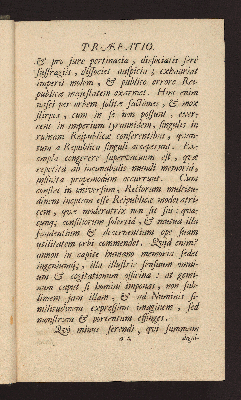 PRÆFATIO.
& pro jure pertinacia, dissociatis
suffragiis, dissociet auspicia; exhauriat
imperii molem, & publico errore Rei-
publicæ majestatem exarmet. Hinc enim
nasci per orbem solitæ factiones, & mox
stirpes, cum in se non possunt, exer-
cent in imperium tyrannidem, singulis in
ruinam Reipublicæ conferentibus, quan-
tum a Republica singuli acceperunt. Ex-
empla congerere supervacuum est, quæ
repetita ab incunabulis mundi memoria,
infinita propemodum occurrunt. Cum
constet in universum, Rectorum multitu-
dinem ineptam esse Reipublicæ moderatri-
cem, quæ moderatrix non sit sui; quæ-
cunq; consiliorum solertia, & omnina alio
& decurrentium ope suam
utilitatem orbi commendet. Quid enim?
annon in capite humano memoria sedet
ingeniumq; illa illustris sensuum omni-
um & cogitationum officina: at gemi-
num caput si homini imponas, non sub-
limem jam illam, & ad Numinis si-
militudinem expressam imaginem, sed
monstrum & portentum effinges.
Quo minus ferendi, qui summam
a 2